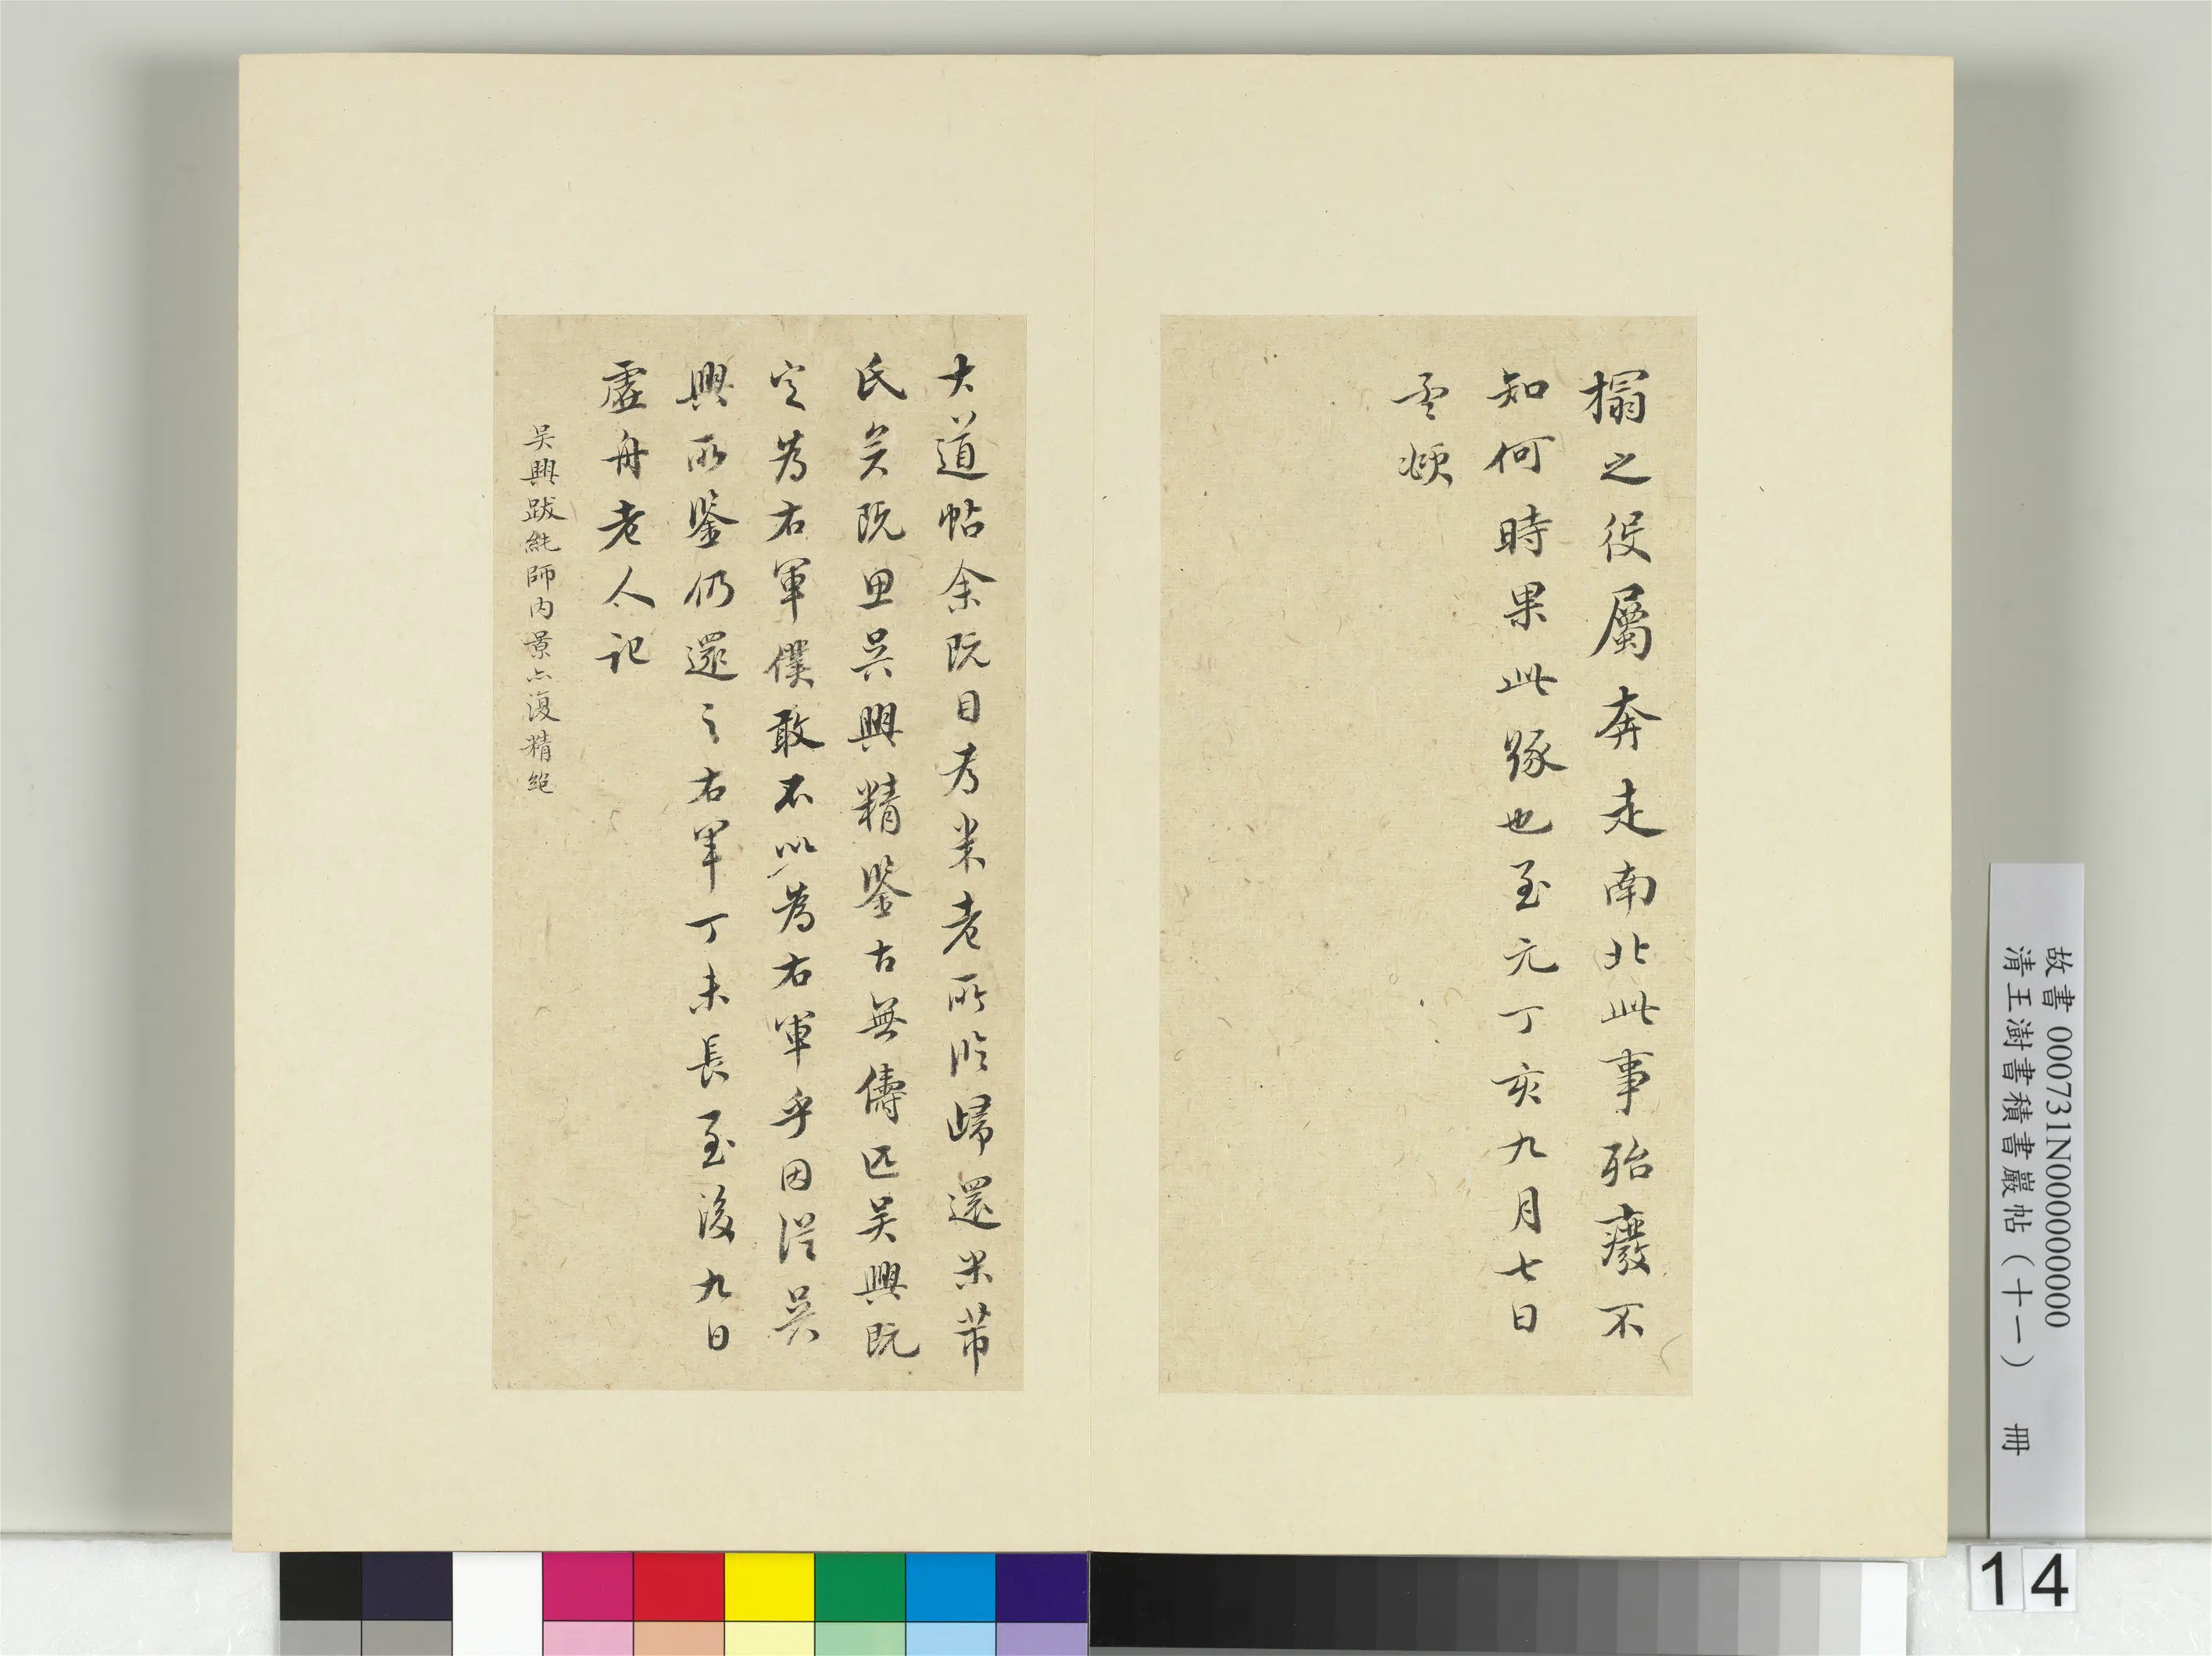 搨之役屬奔走南北此事殆廢不
知何時果此緣也至元丁亥九月七日
孟頫
大道帖余既目考米老所臨歸還米芾
氏矣既思吳興精鑒古無儔匹吳興既
定為右軍僕敢不以為右軍乎因從吳
興所鑒仍還之右軍丁未長至後九日
虛舟老人記
吳興跋純師內景亦復精絕
故書 000731N000000000
清王澍書積書巖帖（十一） 冊
14